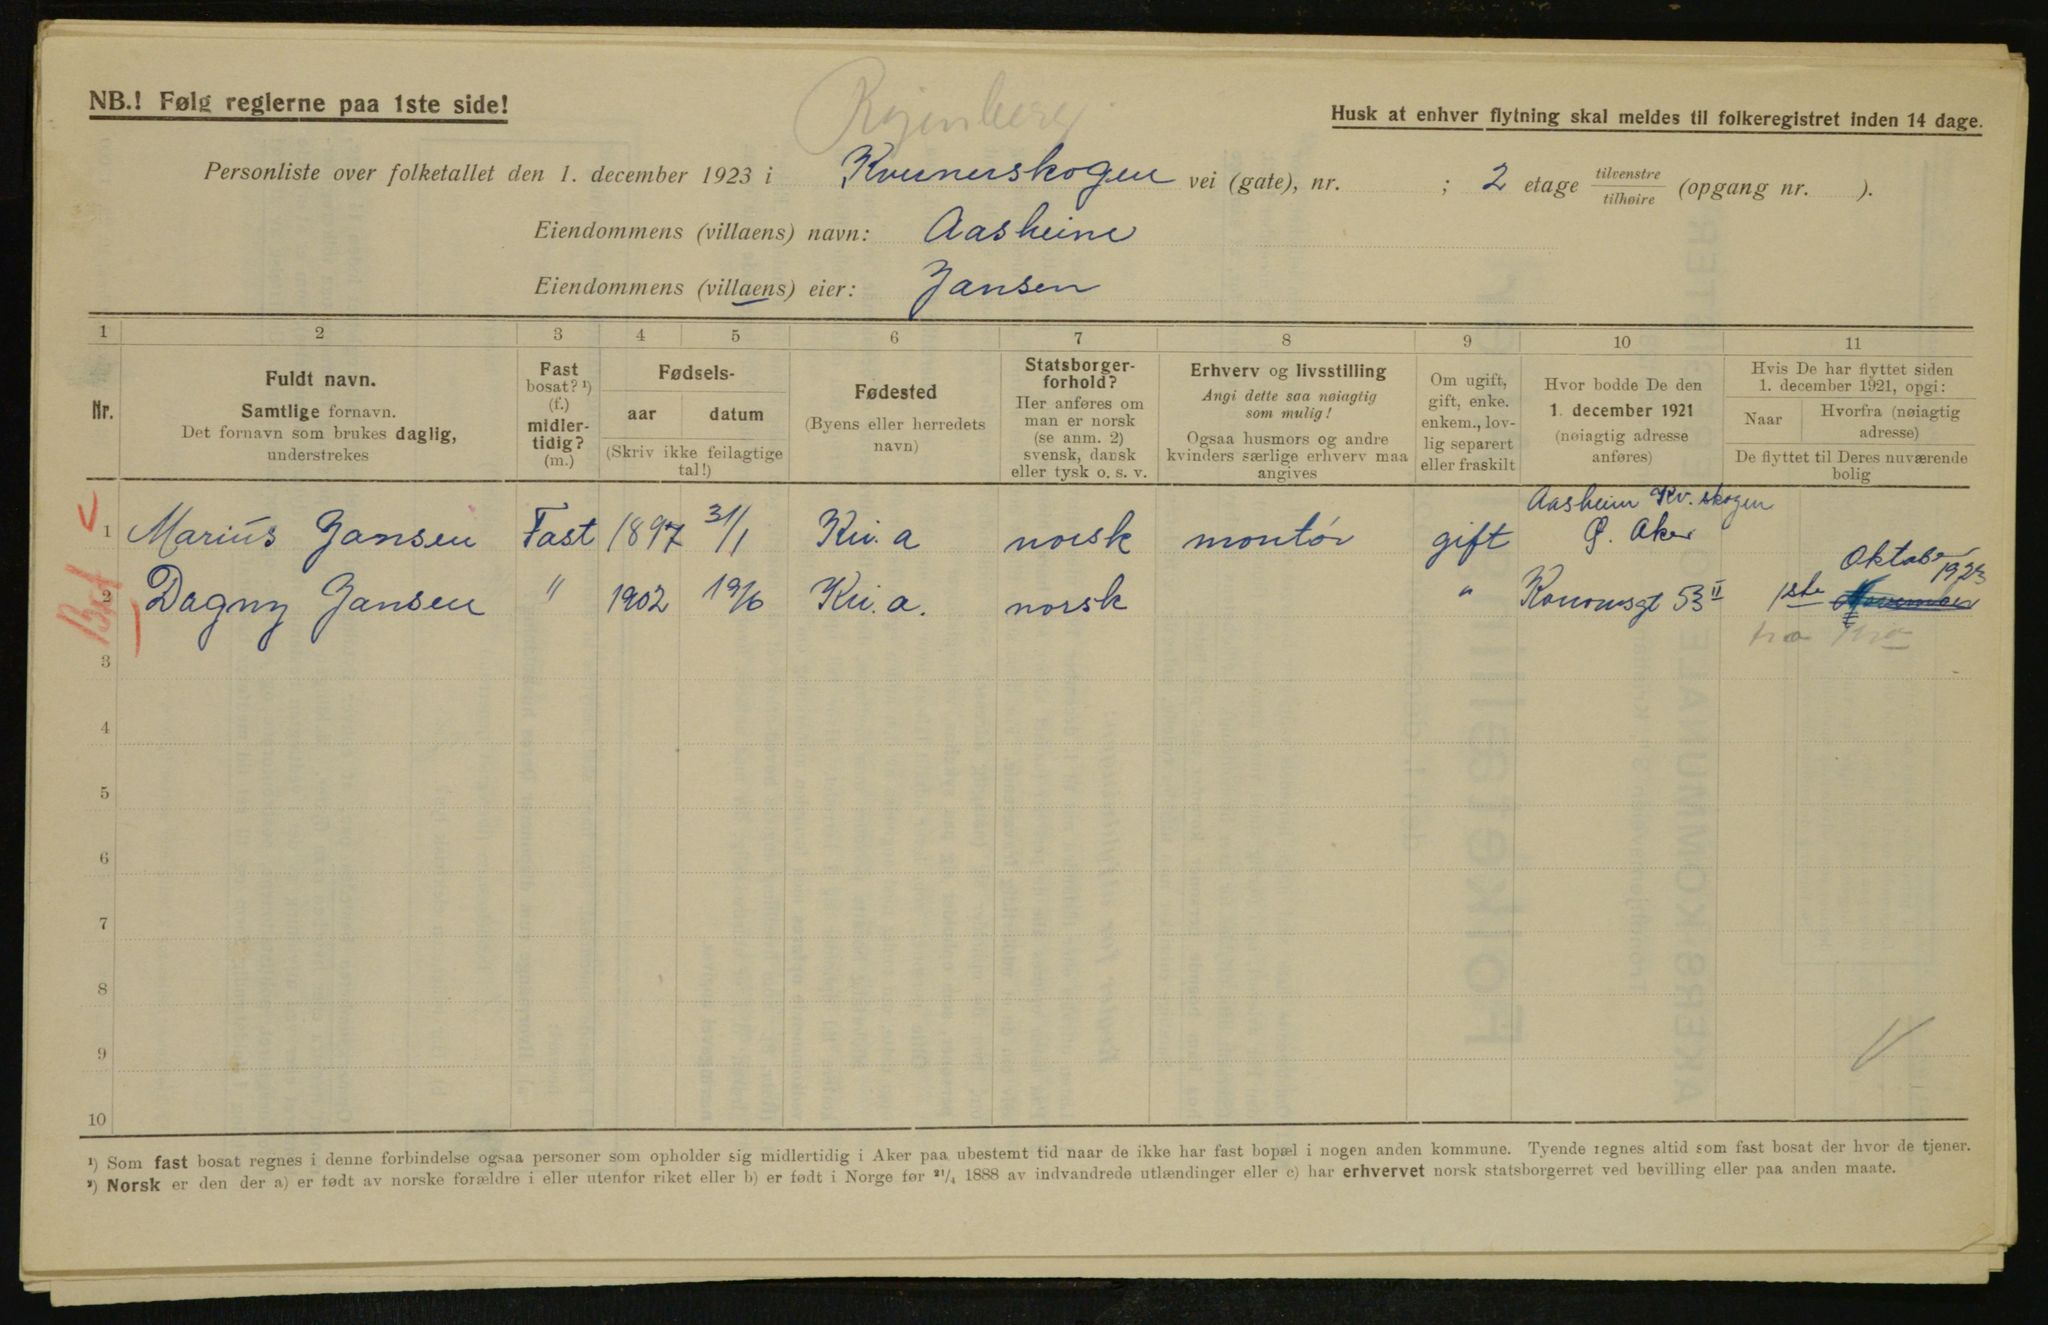 NB.! Følg reglerne paa 1ste side!
Husk at enhver flytning skal meldes til folkeregistret inden 14 dage.
Personliste over folketallet den 1. december 1923 i Kvernerskogen vei (gate), nr. ; 2 etage tilvenstre/tilhøire (opgang nr. ).
Eiendommens (villaens) navn: Aasheim
Eiendommens (villaens) eier: Jansen
1 2 3 4 5 6 7 8 9 10 11
Nr.
Fuldt navn.
Samtlige fornavn.
Det fornavn som brukes daglig,
understrekes
Fast
bosat? ¹)
(f.)
midler-
tidig?
(m.)
Fødsels-
aar datum
(Skriv ikke feilagtige
tal!)
Fødested
(Byens eller herredets
navn)
Statsborger-
forhold?
Her anføres om
man er norsk
(se anm. 2)
svensk, dansk
eller tysk o. s. v.
Erhverv og livsstilling
Angi dette saa nøiagtig
som mulig!
Ogsaa husmors og andre
kvinders særlige erhverv maa
angives
Om ugift,
gift, enke.
enkem., lov-
lig separert
eller fraskilt
Hvor bodde De den
1. december 1921
(nøiagtig adresse
anføres)
Hvis De har flyttet siden
1. december 1921, opgi:
Naar Hvorfra (nøiagtig
adresse)
De flyttet til Deres nuværende
bolig
Aasheim Kv. skogen
1 Marius Jansen Fast 1897 31/1 Kri.a norsk montør gift Ø. Aker
Oktober
1923
2 Dagny Jansen " 1902 19/6 Kri.a. norsk " 53 II 1ste November
fra Kra
3
4
5
6
7
8
9
10
¹) Som fast bosat regnes i denne forbindelse ogsaa personer som opholder sig midlertidig i Aker paa ubestemt tid naar de ikke har fast bopæl i nogen anden kommune. Tyende regnes altid som fast bosat der hvor de tjener.
²) Norsk er den der a) er født av norske forældre i eller utenfor riket eller b) er født i Norge før ²¹/₄ 1888 av indvandrede utlændinger eller c) har erhvervet norsk statsborgerret ved bevilling eller paa anden maate.